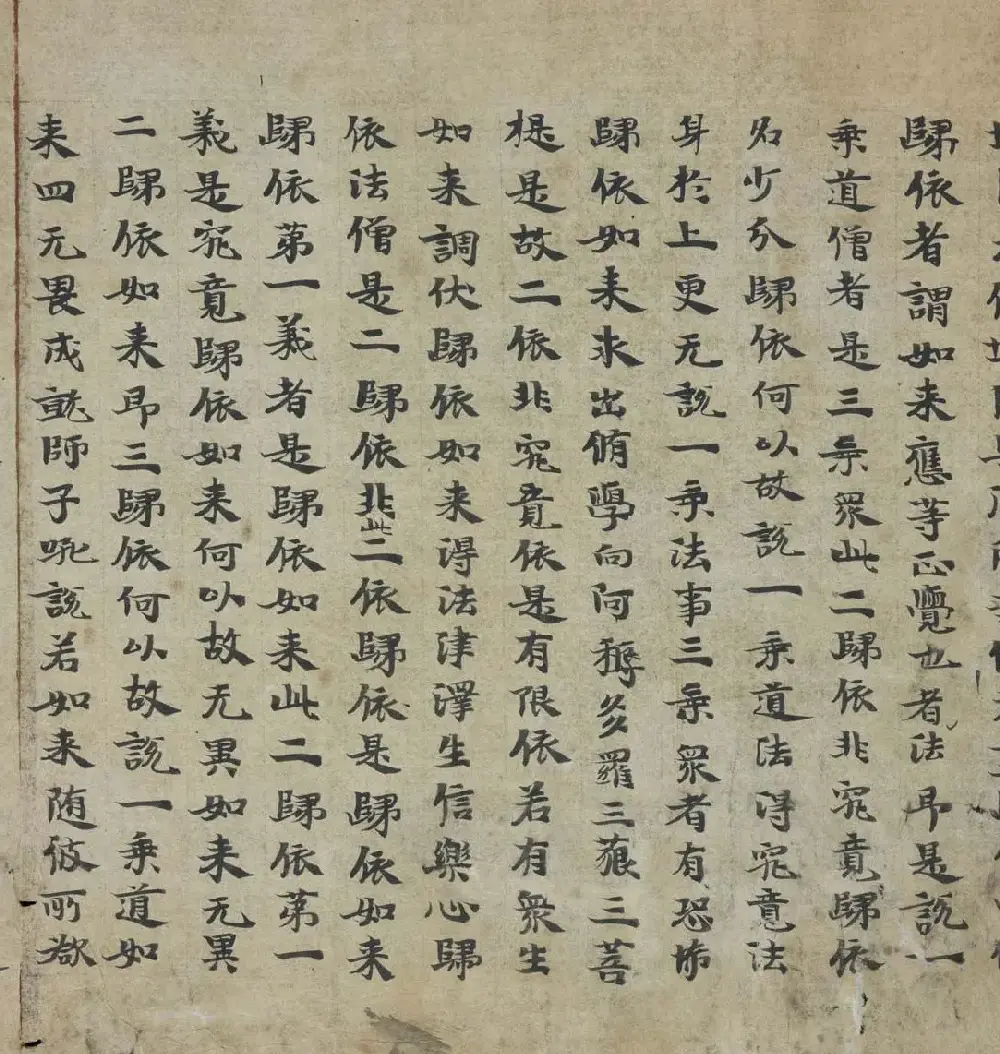 歸依者謂如来應等正覺也者法即是說一
乘道僧者是三乘眾此二歸依非究竟歸依
名少分歸依何以故說一乘道法得究竟法
身於上更无說一乘法事三乘眾者有恐怖
歸依如来求出脩學向阿耨多羅三藐三菩
提是故二依非究竟依是有限依若有眾生
如来調伏歸依如来得法津澤生信樂心歸
依法僧是二歸依非此二依歸依是歸依如来
歸依第一義者是歸依如来此二歸依第一
義是究竟歸依如来何以故无異如来无異
二歸依如来即三歸依何以故說一乘道如
来四无畏成就師子吼說若如来随彼所欲